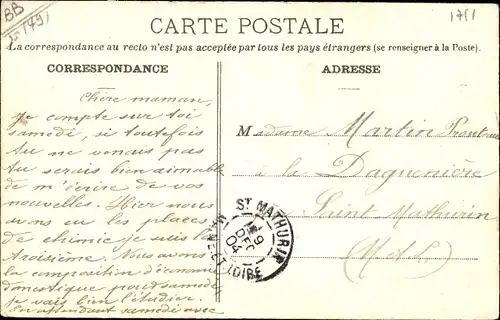 BB
1791
1751
CARTE POSTALE
La correspondance au recto n'est pas acceptée par tous les pays étrangers (se renseigner à la Poste).
CORRESPONDANCE
ADRESSE
Chère maman,
je compte sur toi
samedi, si toutefois
tu ne venais pas
tu serais bien aimable
de m'écrire de vos
nouvelles. Hier nous
avons eu les places
de chimie je suis la
troisième. Nous avons
la composition d'économie
domestique pour samedi
je vais bien l'étudier.
En attendant samedi avec
Madame Martin
à la Daguenière
Saint Mathurin
(M et L)
ST MATHURIN
9
DEC
04
MAINE-ET-LOIRE